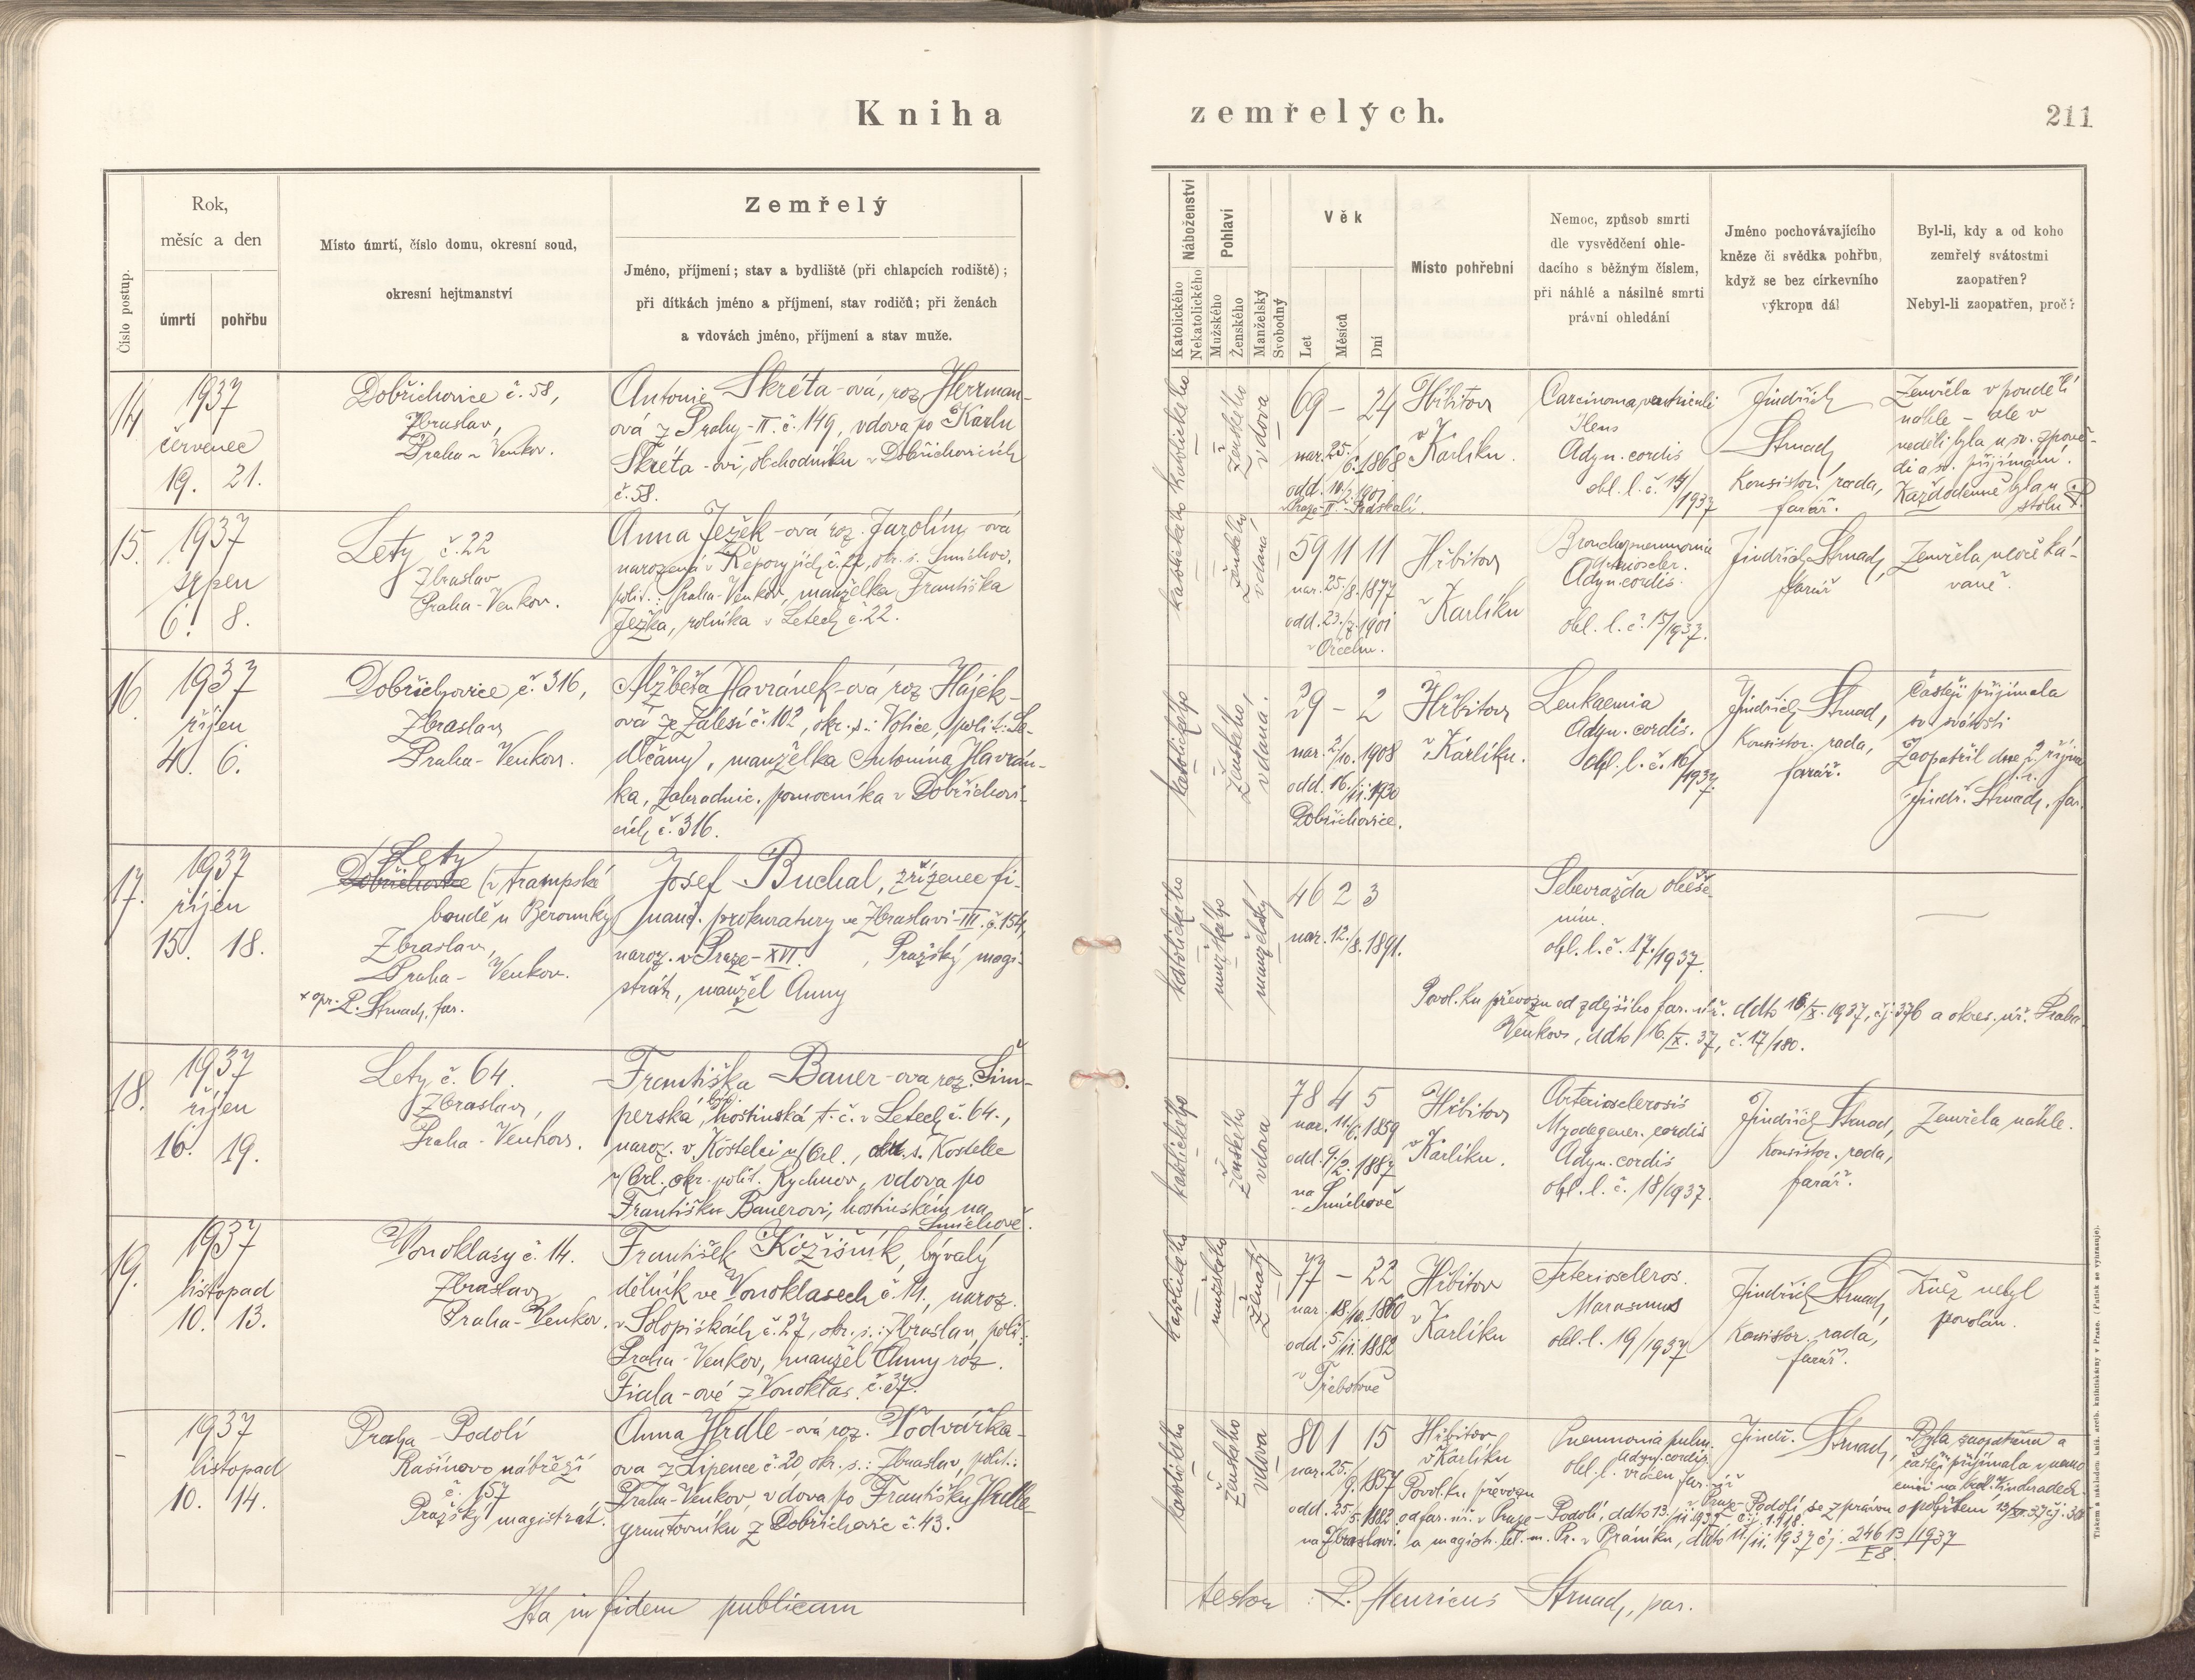 Kniha zemřelých.
211
Číslo postup.
Rok,
měsíc a den
úmrtí
pohřbu
Místo úmrtí, číslo domu, okresní soud,
okresní hejtmanství
Zemřelý
Jméno, příjmení; stav a bydliště (při chlapcích rodiště);
při dítkách jméno a příjmení, stav rodičů; při ženách
a vdovách jméno, příjmení a stav muže.
Náboženství
Katolického
Nekatolického
Pohlaví
Mužského
Ženského
Manželský
Svobodný
Věk
Let
Měsíců
Dní
Místo pohřební
Nemoc, způsob smrti
dle vysvědčení ohle-
dacího s běžným číslem,
při náhlé a násilné smrti
právní ohledání
Jméno pochovávajícího
kněze či svědka pohřbu,
když se bez církevního
výkropu dál
Byl-li, kdy a od koho
zemřelý svátostmi
zaopatřen?
Nebyl-li zaopatřen, proč?
14.
1937
červenec
19. 21.
Dobřichovice č. 58,
Zbraslav,
Praha-Venkov.
Antonie Škréta-ová, roz. Herrman-
ová z Prahy-II. č. 149, vdova po Karlu
Škréta-ovi, obchodníku v Dobřichovicích
č. 58.
katolického
ženského
vdova
69 – 24
nar. 25./6. 1868
odd. 10./2. 1901
v Praze-II.-Podskalí.
Hřbitov
v Karlíku.
Carcinoma ventriculi
Ilens
Adyn. cordis
ohl. l. č. 14/
1937
Jindřich
Strnad,
Konsistor. rada,
farář.
Zemřela v pondělí
náhle – ale v
neděli byla u sv. zpově-
di a sv. přijímání.
Každodenně byla u
stolu P.
15.
1937
srpen
6. 8.
Lety č. 22
Zbraslav
Praha-Venkov.
Anna Ježek-ová roz. Jarolím-ová
narozená v Řeporyjích č. 22, okr. s. Smíchov,
polit.: Praha-Venkov, manželka Františka
Ježka, rolníka v Letech č. 22.
katolického
ženského
vdaná
59 11 11
nar. 25./8. 1877
odd. 23./7. 1901
v Ořechu.
Hřbitov
v Karlíku
Bronchopneumonia
Arterioscler.
Adyn. cordis.
ohl. l. č. 15/1937.
Jindřich Strnad,
farář
Zemřela neočeká-
vaně.
16.
1937
říjen
4. 6.
Dobřichovice č. 316,
Zbraslav
Praha-Venkov.
Alžběta Havránek-ová roz. Hájek-
ová ze Zálesí č. 102, okr. s.: Votice, polit.: Se-
dlčany, manželka Antonína Havrán-
ka, zahradnic. pomocníka v Dobřichovi-
cích č. 316.
katolického
ženského,
vdaná.
29 – 2
nar. 2./10. 1908
odd. 16./11. 1930
Dobřichovice.
Hřbitov
v Karlíku.
Leukaemia
Adyn. cordis.
ohl. l. č. 16/
1937.
Jindřich Strnad,
Konsistor. rada,
farář.
Častěji přijímala
sv. svátosti
Zaopatřil dne 2. října
t. r.
Jindř. Strnad, far.
17.
1937
říjen
15. 18.
Lety
Dobřichovice (v trampské
boudě u Berounky)
Zbraslav,
Praha-Venkov.
× opr. P. Strnad, far.
Josef Buchal, zřízenec fi-
nanč. prokuratury ve Zbraslavi-III. č. 154,
naroz. v Praze-XVI. , Pražský magi-
strát, manžel Anny
katolického
mužského
manželský
46 2 3
nar. 12./8. 1891.
Sebevražda oběše-
ním.
ohl. l. č. 17./1937.
Povol. ku převozu od zdejšího far. úř. ddto 16./X. 1937, čj. 376 a okres. úř. Praha
Venkov, ddto 16./X. 37, č. 17/180.
18.
1937
říjen
16. 19.
Lety č. 64.
Zbraslav,
Praha-Venkov.
Františka Bauer-ová roz. Šim-
perská, býv. hostinská t. č. v Letech č. 64.,
naroz. v Kostelci n/Orl., okr. s. Kostelec
n/Orl., okr. polit. Rychnov, vdova po
Františku Bauerovi, hostinském na
Smíchově.
katolického
ženského
vdova
78 4 5
nar. 11./6. 1859
odd. 9./2. 1887
na
Smíchově
Hřbitov
v Karlíku.
Arteriosclerosis
Myodegener. cordis
Adyn. cordis
ohl. l. č. 18/1937.
Jindřich Strnad,
Konsistor. rada,
farář.
Zemřela náhle.
19.
1937
listopad
10. 13.
Vonoklasy č. 14.
Zbraslav
Praha-Venkov.
František Kožišník, bývalý
dělník ve Vonoklasech č. 14, naroz.
v Solopiskách č. 27, okr. s.: Zbraslav, polit.:
Praha-Venkov, manžel Anny roz.
Fiala-ové z Vonoklas č. 37.
katolického
mužského
ženatý
77 – 22
nar. 18./10. 1860
odd. 5./11. 1882
v Třebotově
Hřbitov
v Karlíku
Arterioscleros.
Marasmus
ohl. l. 19/1937
Jindřich Strnad,
Konsistor. rada,
farář.
Kněz nebyl
povolán.
–
1937
listopad
10. 14.
Praha-Podolí
Rašínovo nábřeží
č. 157
Pražský magistrát.
Anna Hrdle-ová roz. Vodvářka-
ova z Lipence č. 20, okr. s.: Zbraslav, polit.:
Praha-Venkov, vdova po Františku Hrdle
gruntovníku z Dobřichovic č. 43.
katolického
ženského
vdova
80 1 15
nar. 25./9. 1857
odd. 25./5. 1882
na Zbraslavi.
Hřbitov
v Karlíku
Pneumonia pulm.
Adyn. cordis
ohl. l. viděn far. úř.
v Praze-Podolí se zprávou o pohřbem
Jindř. Strnad,
Byla zaopatřena a
častěji přijímala v nemo
Povol. ku převozu
od far. úř. v Praze-Podolí, ddto 13./11. 1937 čj. 1.918.
a magistr. hl. m. Pr. v Bráníku, ddto 11./11. 1937 čj. 24613/1937
E8.
Ita in fidem publicam
testor: P. Henricus Strnad, par.
Tiskem a nákladem kníž. arcib. knihtiskárny v Praze. (Patisk se vyhrazuje).